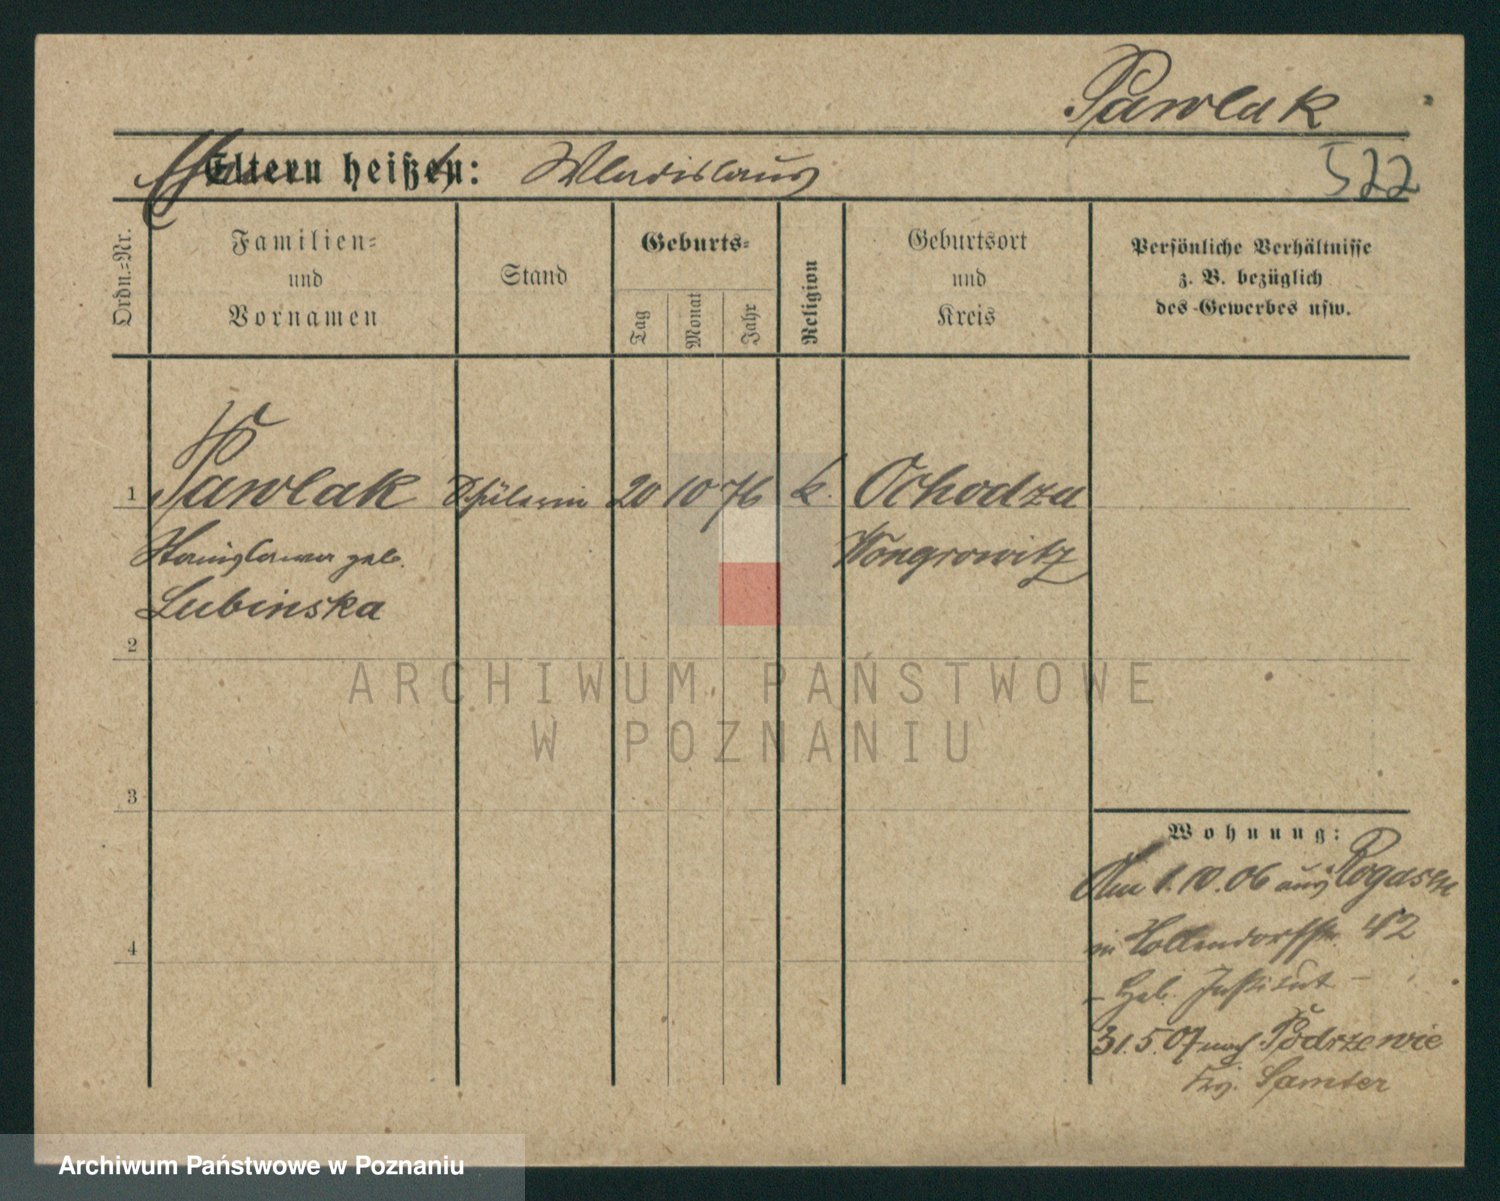 Pawlak
Eltern heißen: Wladislaus
522
Ordn.-Nr.
Familien-
und
Vornamen
Stand
Geburts-
Tag
Monat
Jahr
Religion
Geburtsort
und
Kreis
Persönliche Verhältnisse
z. B. bezüglich
des Gewerbes usw.
1 Pawlak Schülerin 20 10 76 k. Ochodza
Stanislawa geb. Wongrowitz
Lubinska
2
ARCHIWUM PAŃSTWOWE
W POZNANIU
3
Wohnung:
Am 1.10.06 aus Rogasen
in 42
4
- Heb. Institut -
31.5.07 nach Podrzewie
Krs. Samter
Archiwum Państwowe w Poznaniu